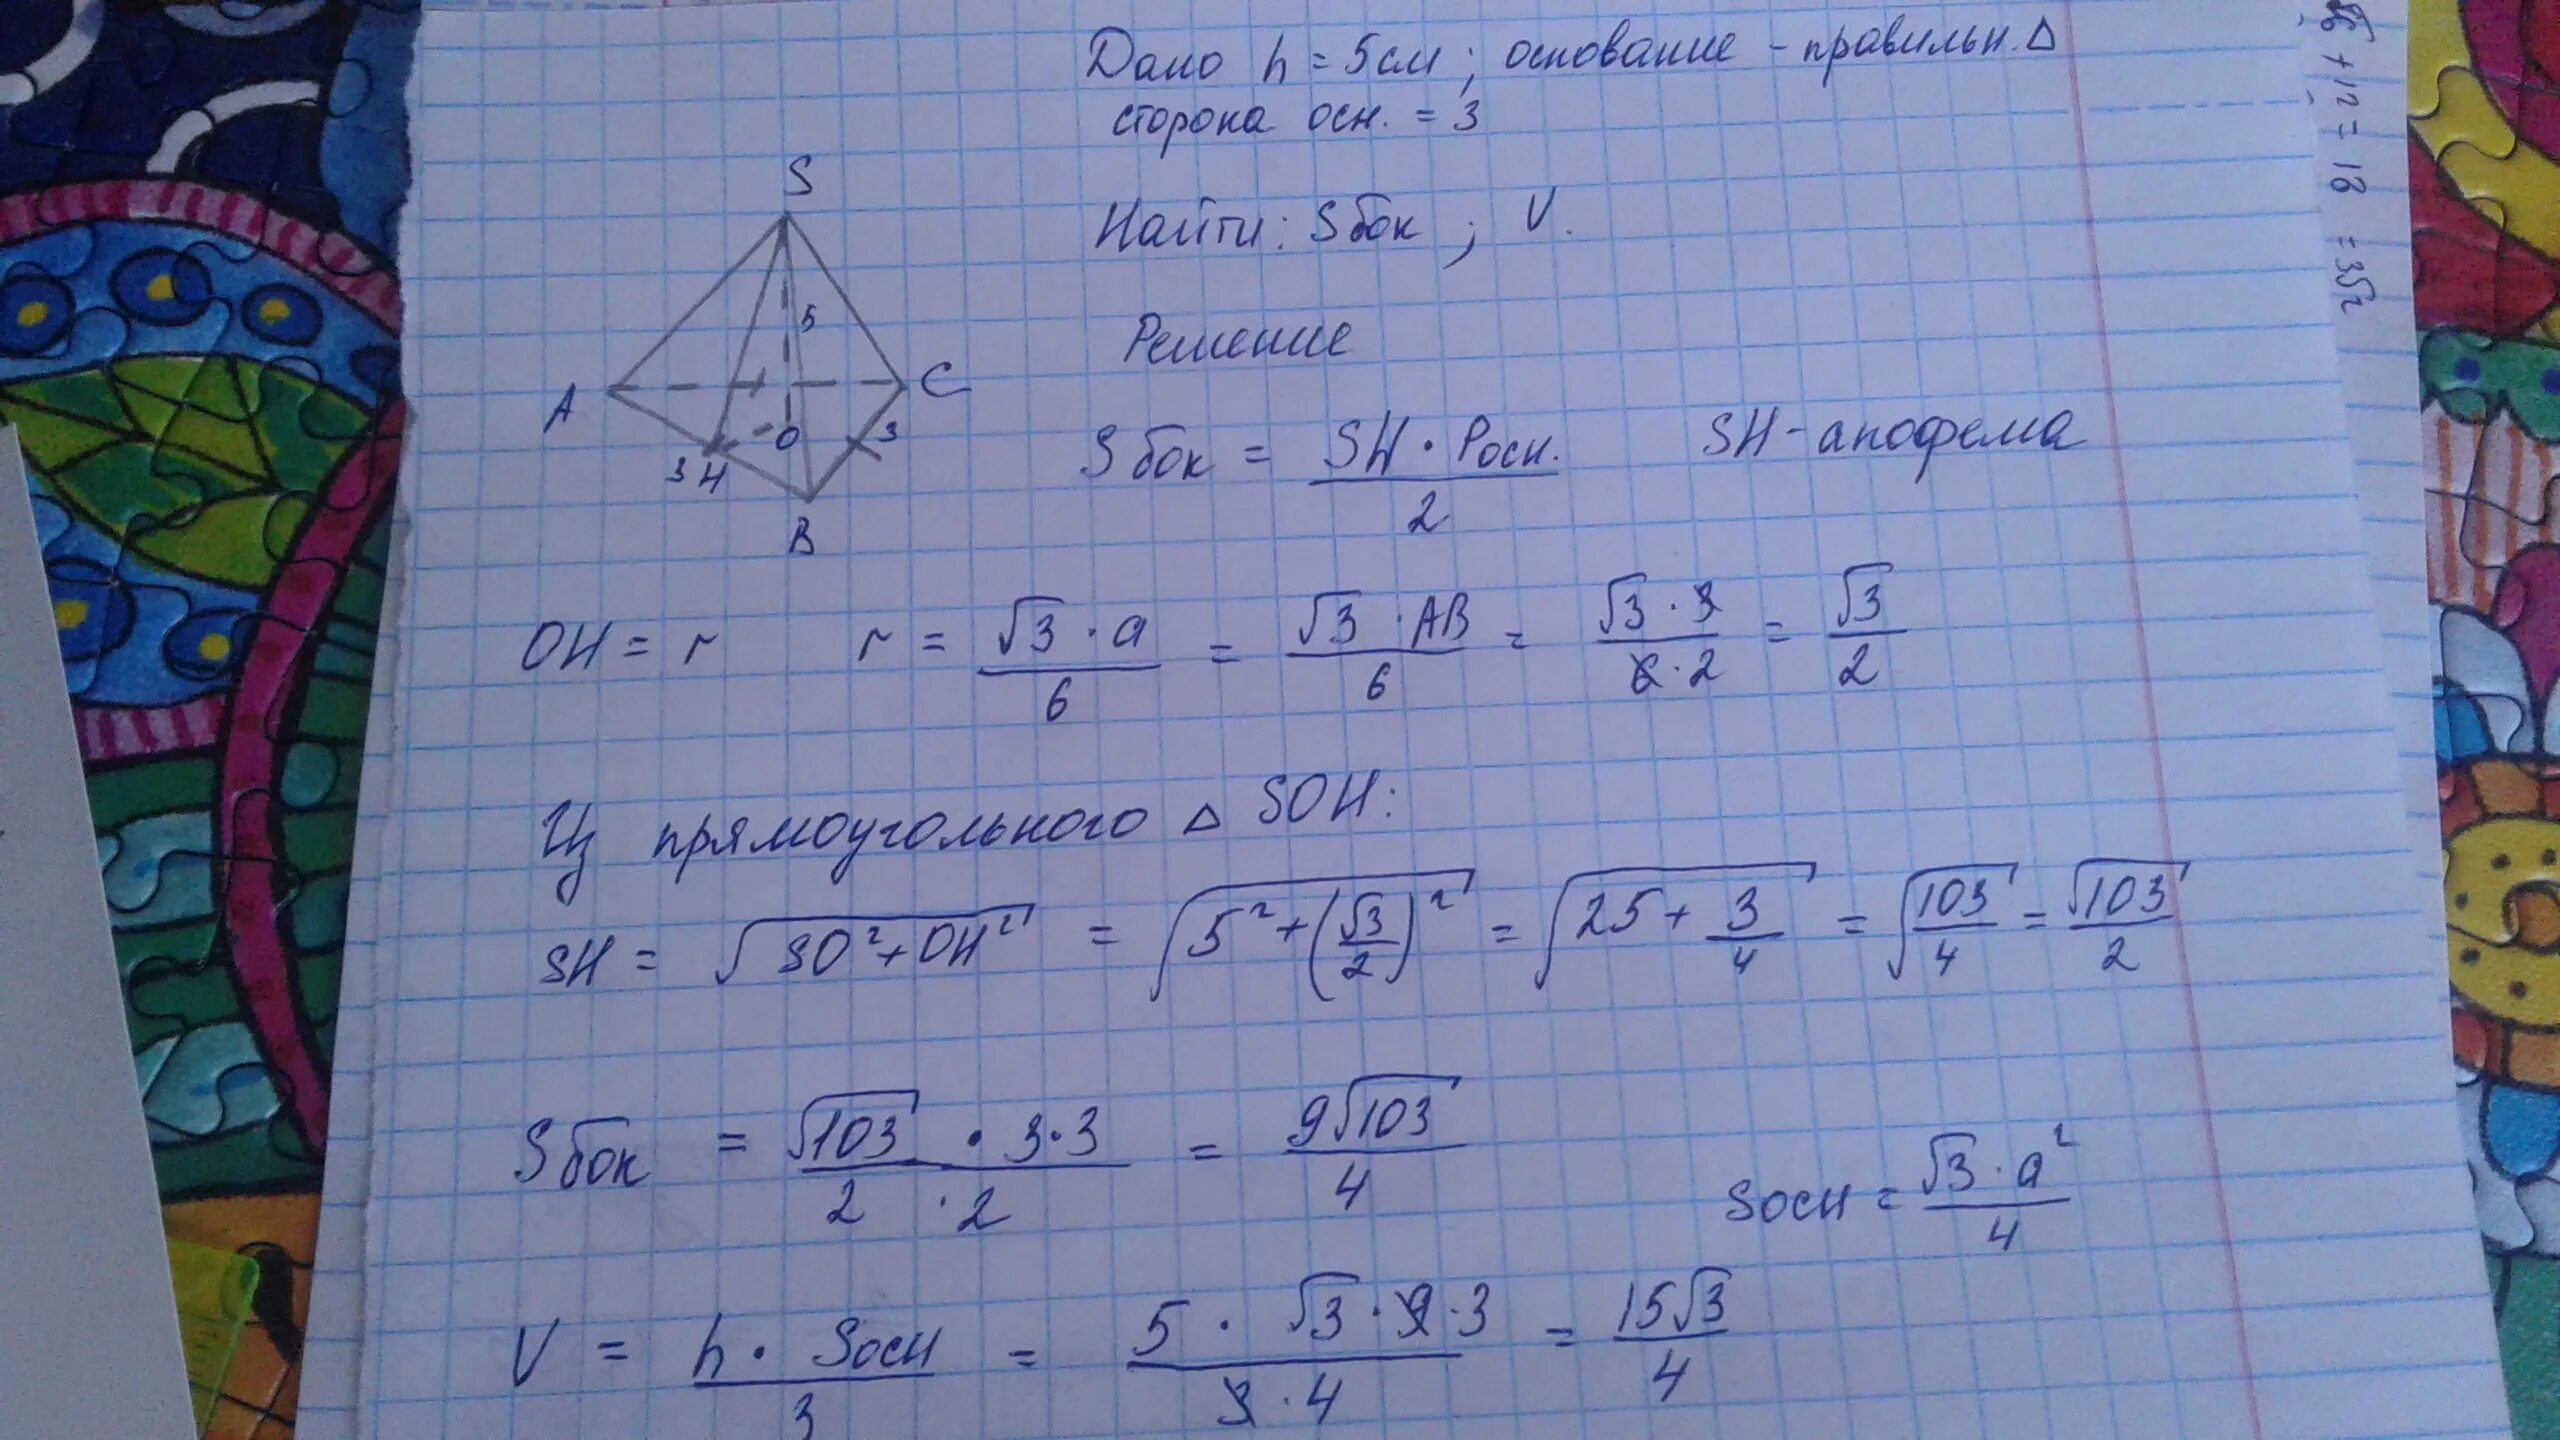 Дано h = 5см ; основание - правильн. Δ
сторона осн. = 3
Найти: Sбок ; V.
Решение
S
5
A
C
O
3
3 H
B
Sбок = SH · Pосн. / 2    SH - апофема
OH = r    r = √3 · a / 6 = √3 · AB / 6 = √3 · 3 / 6 · 2 = √3 / 2
Из прямоугольного Δ SOH:
SH = √(SO² + OH²) = √(5² + (√3/2)²) = √(25 + 3/4) = √(103/4) = √103 / 2
Sбок = √103 · 3·3 / 2 · 2 = 9√103 / 4
Sосн = √3 · a² / 4
V = h · Sосн / 3 = 5 · √3 · 9 · 3 / 3 · 4 = 15√3 / 4
+ 12 = 18